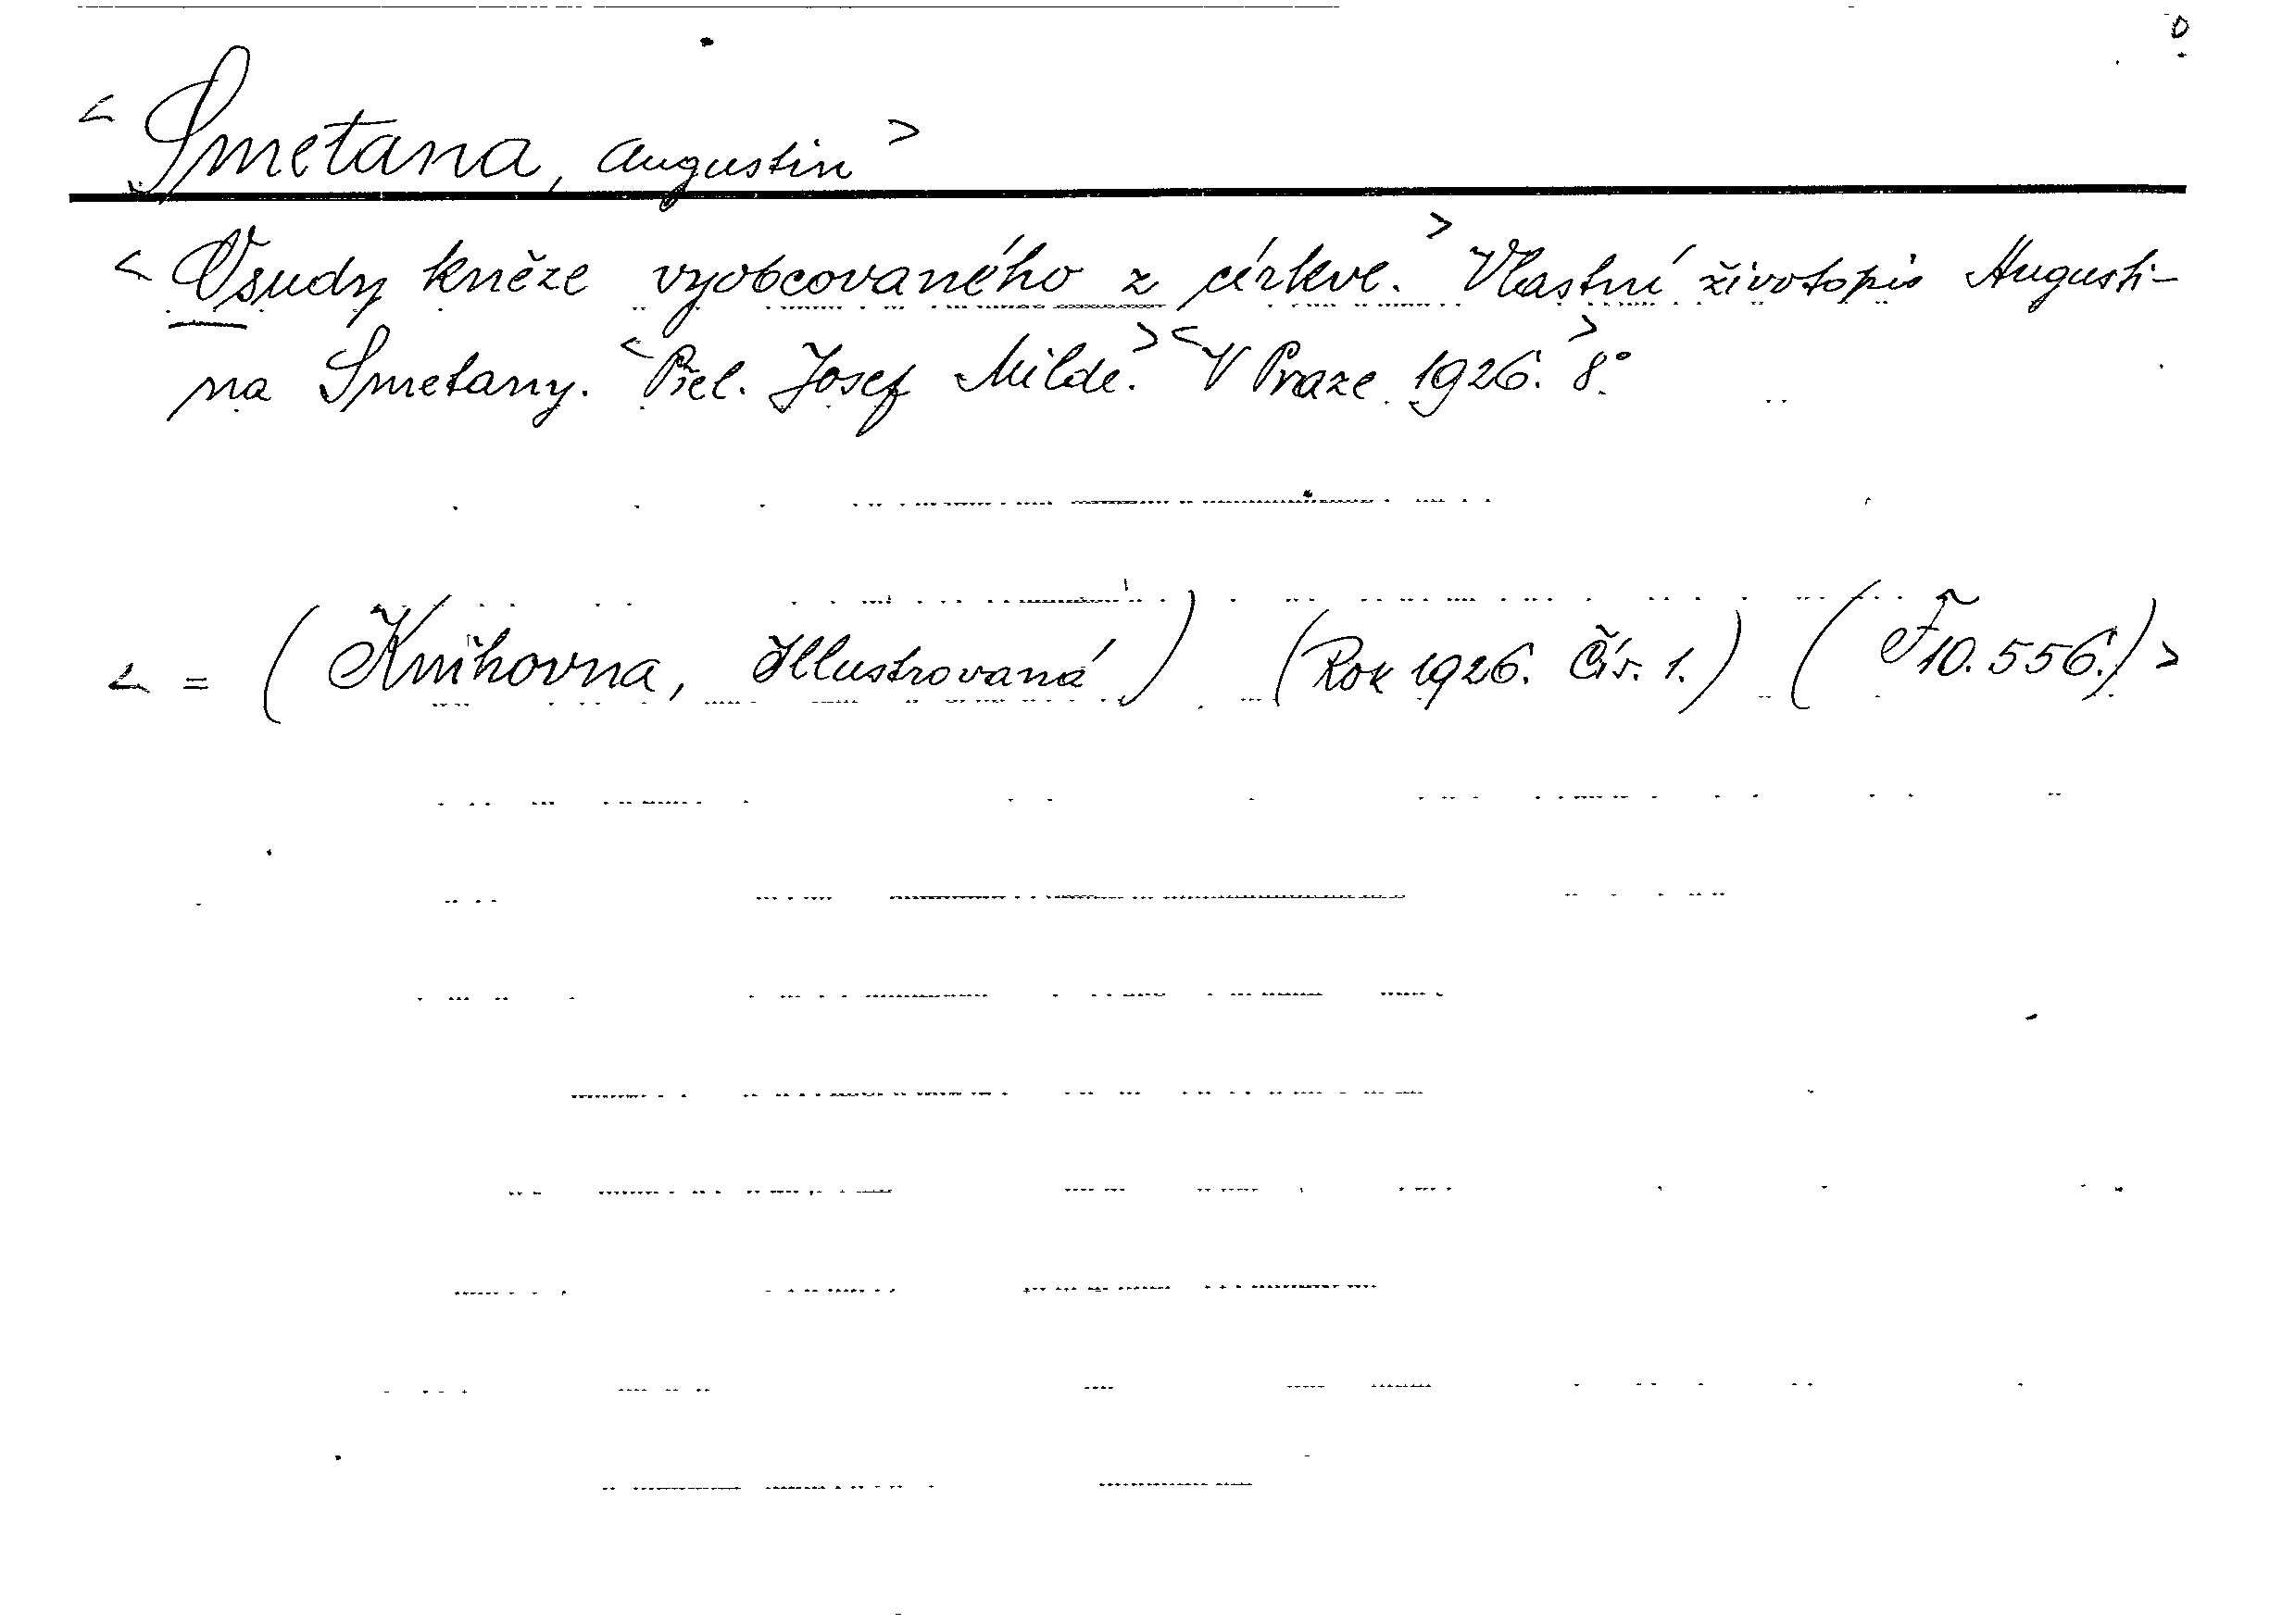 < Smetana, Augustin >
< Osudy kněze vyobcovaného z církve. > Vlastní životopis Augusti-
na Smetany. < Přel. Josef Milde. > < V Praze 1926. > 8.°
< = ( Knihovna, Illustrovaná ) (Rok 1926. Čís. 1.) ( F 10.556.) >